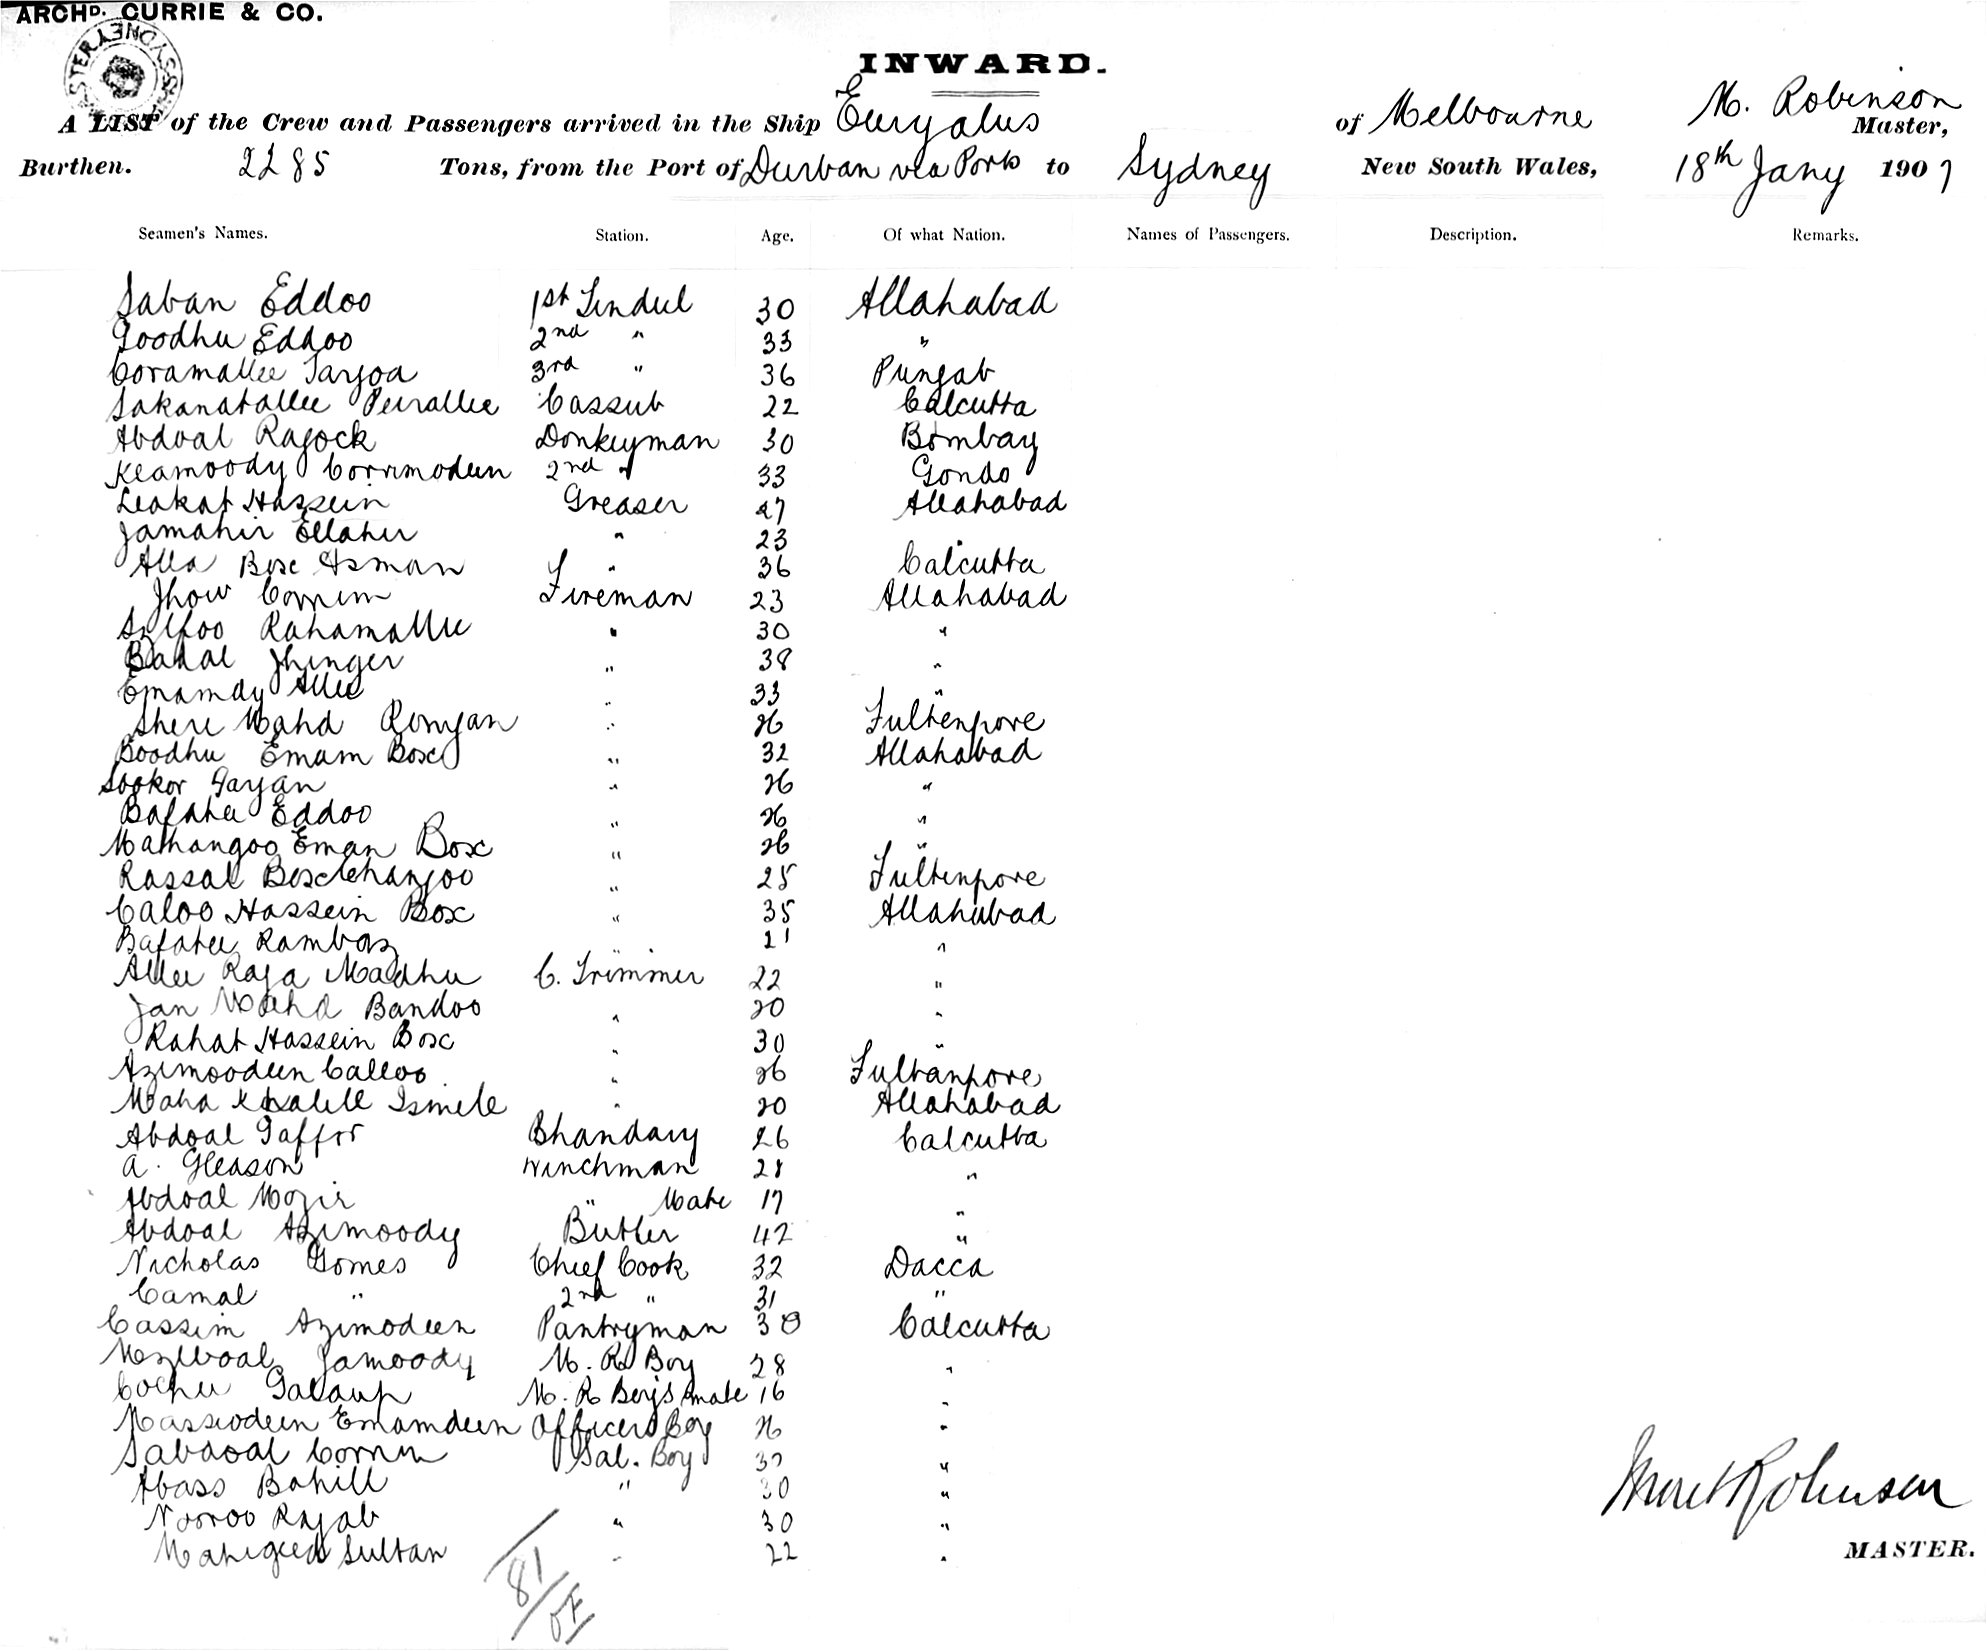 ARCHD. CURRIE & CO.
INWARD.
A LIST of the Crew and Passengers arrived in the Ship Euryalus of Melbourne M. Robinson Master,
Burthen. 2285 Tons, from the Port of Durban via Ports to Sydney New South Wales, 18th Jany 1907
Seamen's Names. Station. Age. Of what Nation. Names of Passengers. Description. Remarks.
Saban Eddoo 1st Tindul 30 Allahabad
Goodhu Eddoo 2nd " 33 "
Coramallee Taryoa 3rd " 36 Punjab
Sakanatallee Peirallee Cassub 22 Calcutta
Abdoal Ragock Donkeyman 30 Bombay
Keamoody Corrimodeen 2nd " 33 Gondo
Leakat Hassein Greaser 27 Allahabad
Jamahir Ellahee " 23
Alla Box Asman " 36 Calcutta
Jhow Corrim Fireman 23 Allahabad
Rahamallee " 30 "
Badal Jhinger " 38 "
Emamdy Allee " 33 "
Shere Mahd Romjan " 26 Fultenpore
Boodhu Emam Box " 32 Allahabad
Sookor Garjan " 26 "
Bafatee Eddoo " 26 "
Mathangoo Eman Box " 26 "
Rassal Box " 25 Fultenpore
Caloo Hassein Box " 35 Allahabad
Bafatee Ramboz " 21 "
Allee Raja Madhu C. Trimmer 22 "
Jan Mahd Bandoo " 20 "
Rahat Hassein Box " 30 "
Azimoodeen Calloo " 26 Fultanpore
Maha Khalill Ismile " 20 Allahabad
Abdoal Gaffor Bhandary 26 Calcutta
A. Gleason Winchman 28 "
Abdoal Mozir " Mate 17 "
Abdoal Azimoody Butler 42 "
Nicholas Gomes Chief Cook 32 Dacca
Camal " 2nd " 31 "
Cassim Azimodeen Pantryman 30 Calcutta
Jamoody M. R. Boy 28 "
Cochu Galaup M. R Boy's mate 16 "
Massiodeen Emamdeen Officers Boy 26 "
Sabdoal Corrim Sal. Boy 32 "
Abass Bahill " 30 "
Nooroo Rajab " 30 "
Sultan " 22 "
81
Robinson
MASTER.